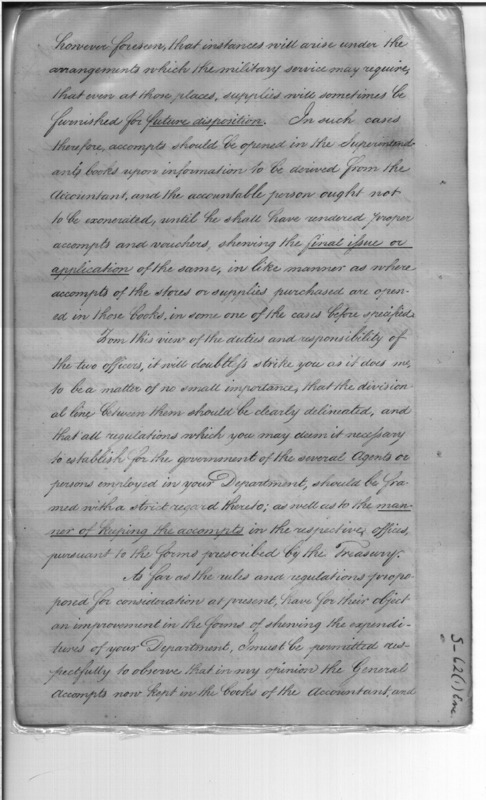 however foreseen, that instances will arise under the
arrangements which the military service may require,
that even at those places, supplies will sometimes be
furnished for future disposition. In such cases
therefore, accompts should be opened in the Superintend-
ant's books upon information to be derived from the
Accountant, and the accountable person ought not
to be exonerated, until he shall have rendered proper
accompts and vouchers, shewing the final issue or
application of the same, in like manner as where
accompts of the stores or supplies purchased are open-
ed in those books, in some one of the cases before specified.
From this view of the duties and responsibility of
the two officers, it will doubtless strike you as it does me,
to be a matter of no small importance, that the division
al line between them should be clearly delineated, and
that all regulations which you may deem it necessary
to establish for the government of the several Agents or
persons employed in your Department, should be fra-
med with a strict regard thereto; as well as to the man-
ner of keeping the accompts in the respective offices,
pursuant to the forms prescribed by the Treasury.
As far as the rules and regulations propo-
posed for consideration at present, have for their object
an improvement in the forms of shewing the expendi-
tures of your Department, I must be permitted res-
pectfully to observe that in my opinion the General
Accompts now kept in the books of the Accountant, and
5-62(1) Enc